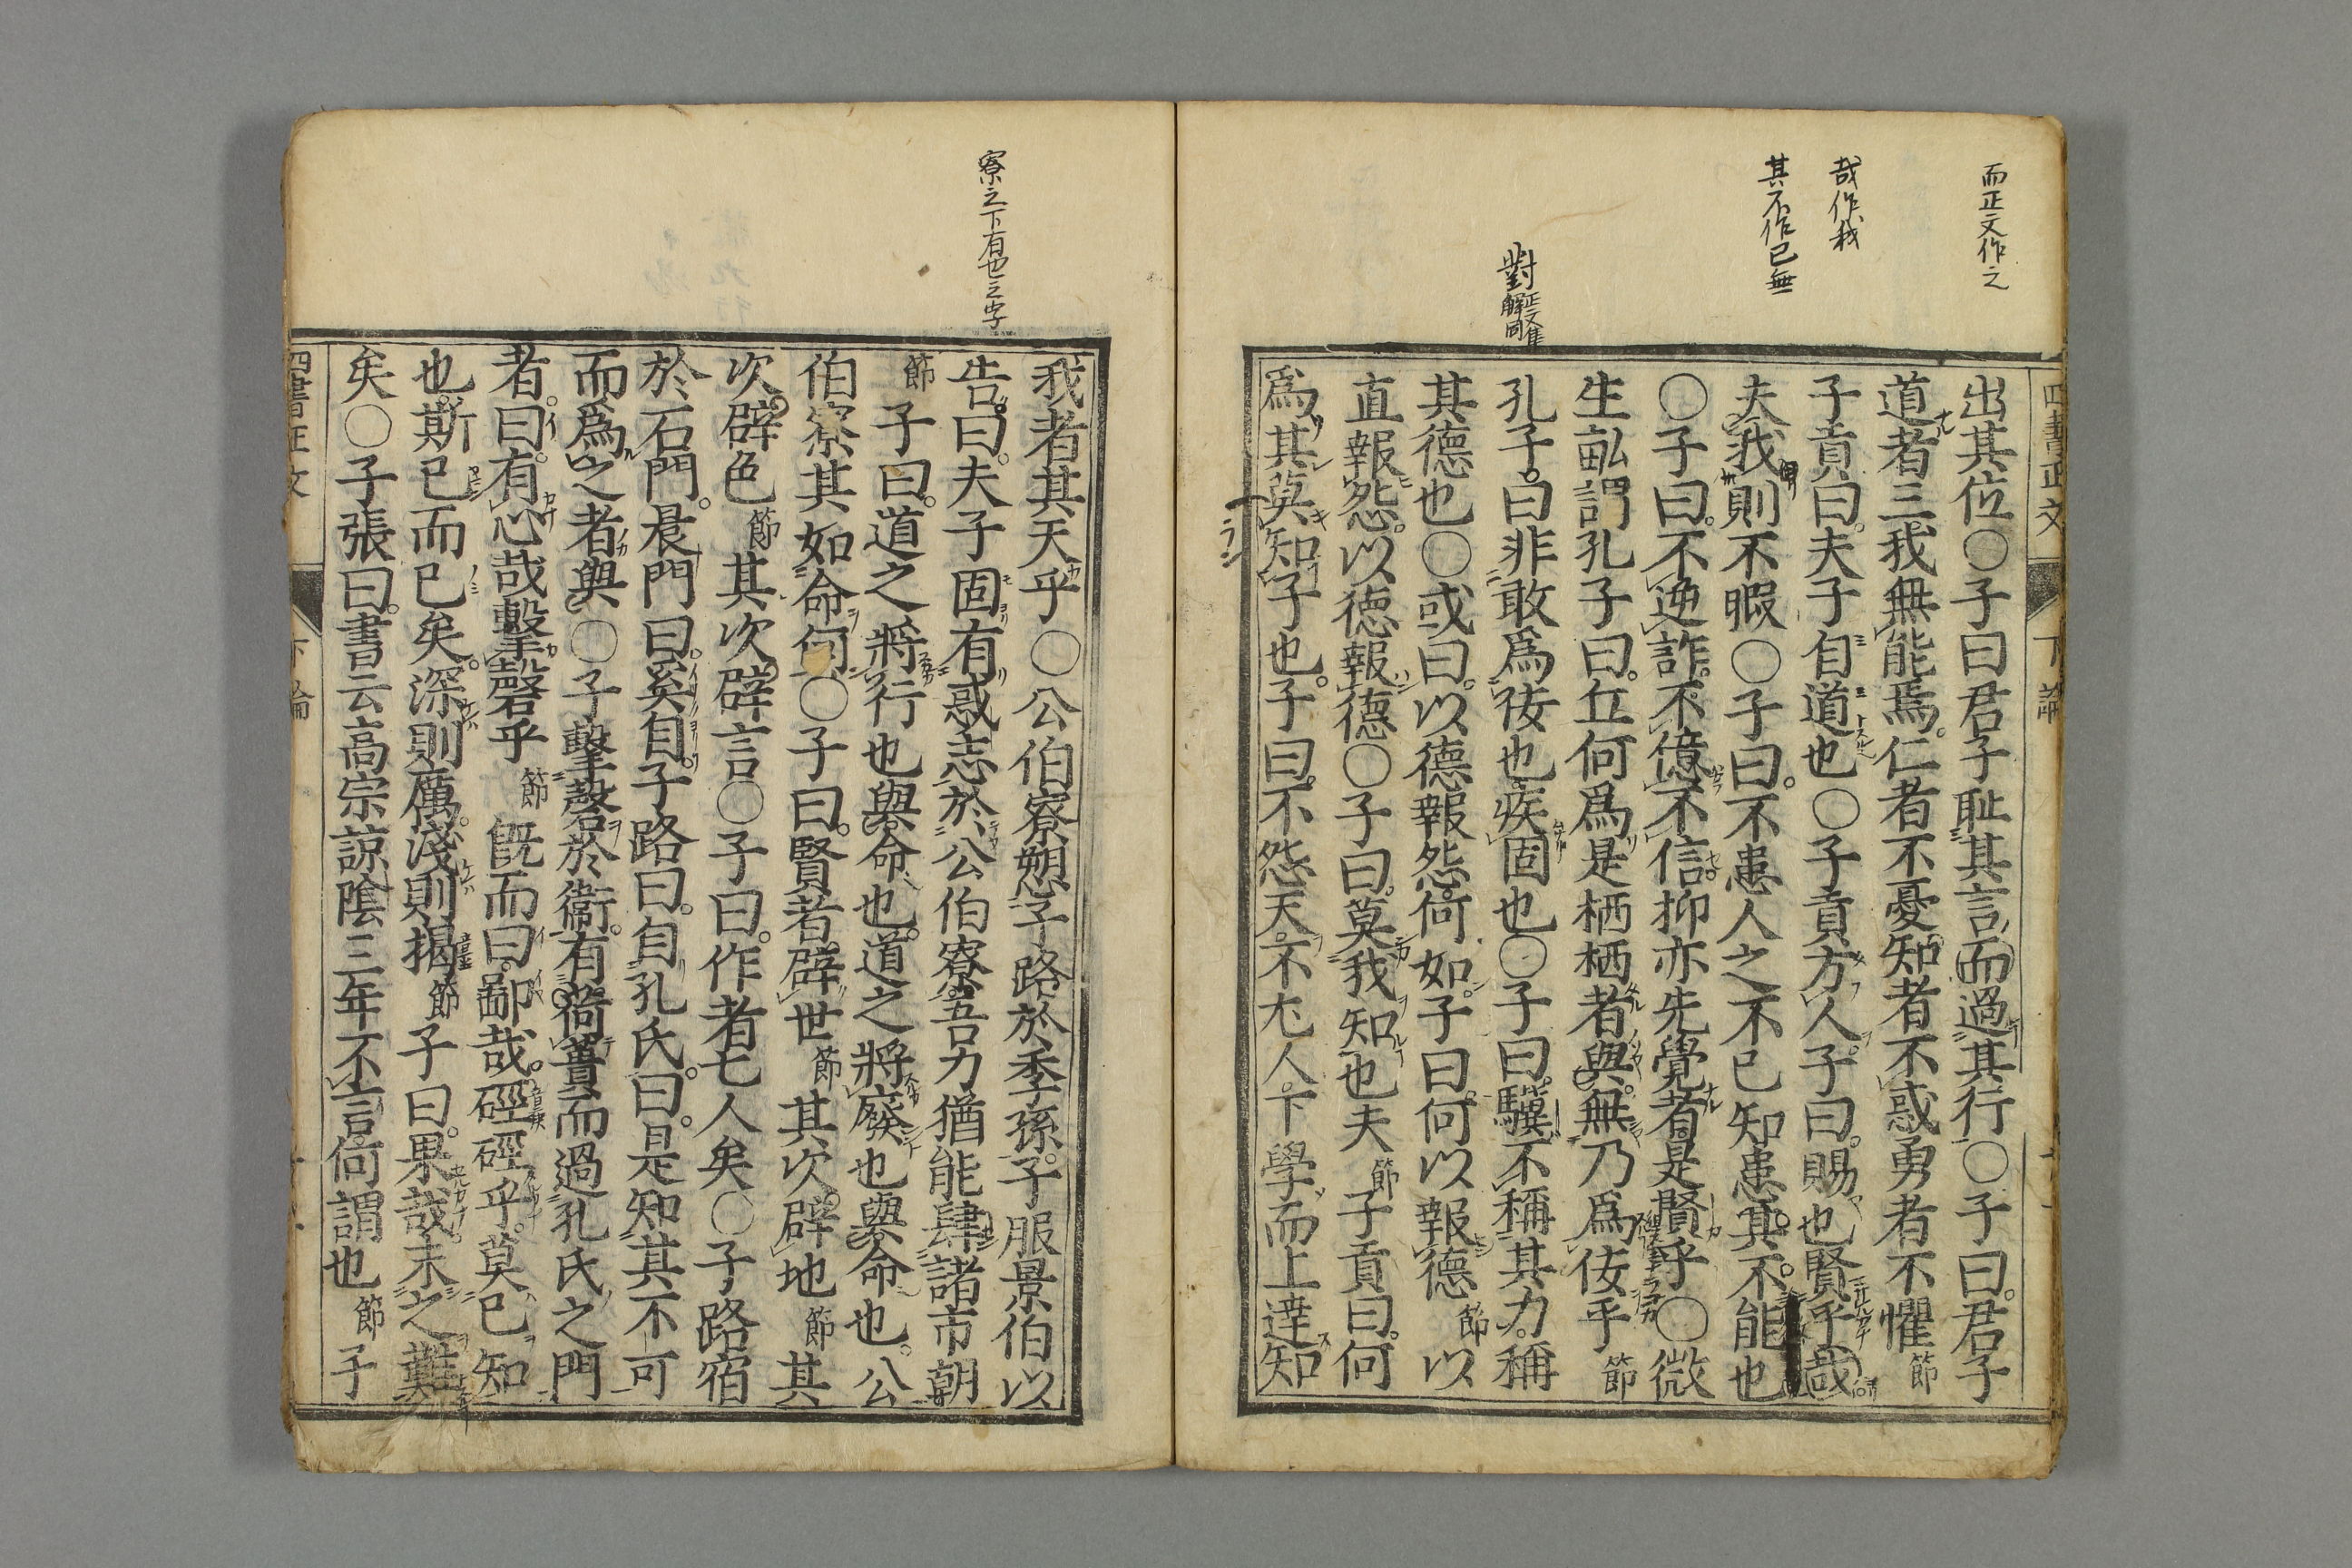 而正文作之
哉作我
其不作已無
對正文集解同
四書正文 下論
出其位〇子曰君子耻其言而過其行〇子曰君子
道者三我無能焉仁者不憂知者不惑勇者不懼節
子貢曰夫子自道也〇子貢方人子曰賜也賢乎哉
夫我則不暇〇子曰不患人之不已知患其不能也
〇子曰不逆詐不億不信抑亦先覺者是賢乎〇微
生畝謂孔子曰丘何爲是栖栖者與無乃爲佞乎節
孔子曰非敢爲佞也疾固也〇子曰驥不稱其力稱
其德也〇或曰以德報怨何如子曰何以報德節以
直報怨以德報德〇子曰莫我知也夫節子貢曰何
爲其莫知子也子曰不怨天不尤人下學而上達知
寮之下有也之字
我者其天乎〇公伯寮愬子路於季孫子服景伯以
告曰夫子固有惑志於公伯寮吾力猶能肆諸市朝
節子曰道之將行也與命也道之將廢也與命也公
伯寮其如命何〇子曰賢者辟世節其次辟地節其
次辟色節其次辟言〇子曰作者七人矣〇子路宿
於石門晨門曰奚自子路曰自孔氏曰是知其不可
而爲之者與〇子擊磬於衞有荷蕢而過孔氏之門
者曰有心哉擊磬乎節既而曰鄙哉硜硜乎莫已知
也斯已而已矣深則厲淺則揭節子曰果哉末之難
矣〇子張曰書云高宗諒陰三年不言何謂也節子
四書正文 下論